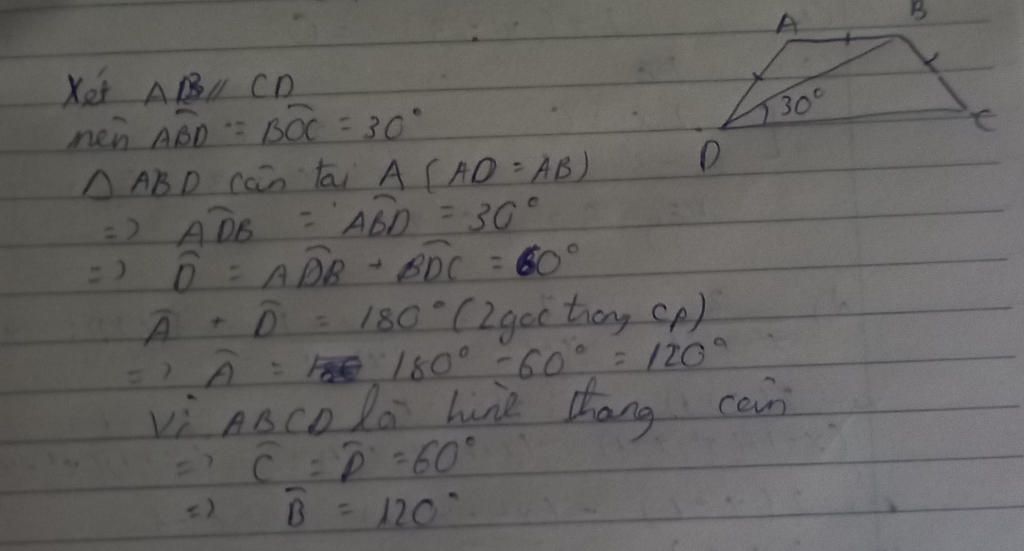 A
B
30°
C
D
Xét AB // CD
nên ABD̂ = BDĈ = 30°
Δ ABD cân tại A (AD = AB)
=> ADB̂ = ABD̂ = 30°
=> D̂ = ADB̂ + BDĈ = 60°
Â + D̂ = 180° (2 góc trong CP)
=> Â = 180° - 60° = 120°
Vì ABCD là hình thang cân
=> Ĉ = D̂ = 60°
=> B̂ = 120°